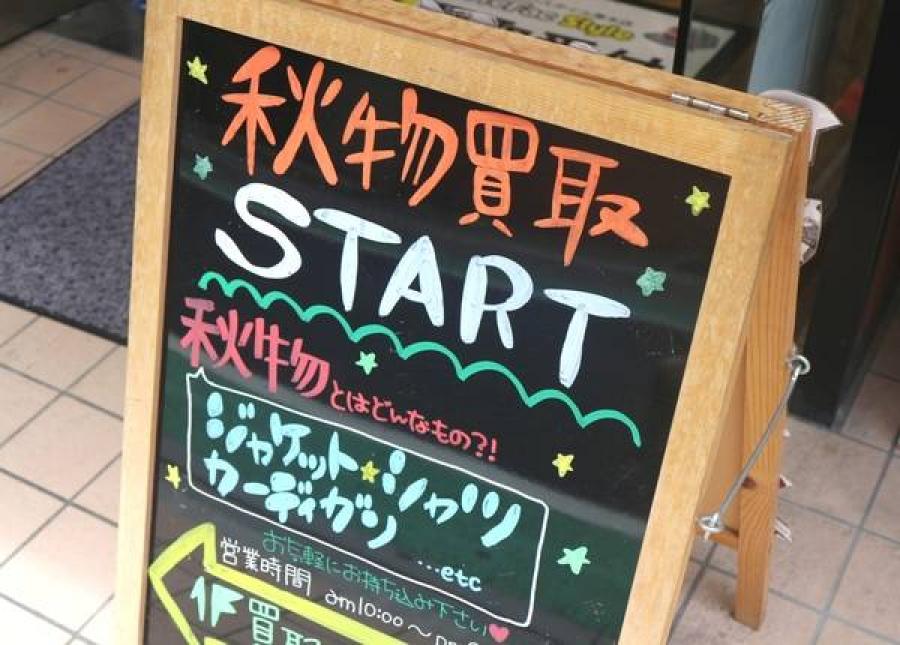 Style
秋物買取
START
秋物とはどんなもの?!
ジャケット★シャツ
カーディガン
...etc
お気軽にお持ち込み下さい♥
営業時間 am10:00〜
1F 買取